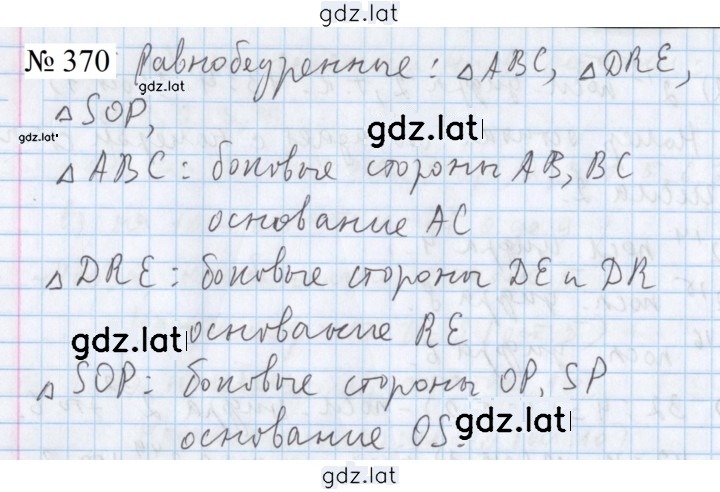 gdz.lat
№ 370 Равнобедренные: △ABC, △DRE,
gdz.lat
△SOP,
gdz.lat
gdz.lat
△ABC: боковые стороны AB, BC
основание AC
△DRE: боковые стороны DE и DR
gdz.lat
основание RE
△SOP: боковые стороны OP, SP
gdz.lat
основание OS.
gdz.lat